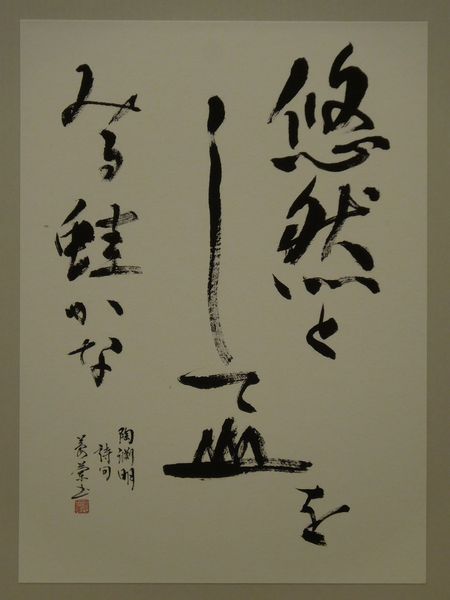 悠然と
して山を
みる蛙かな
陶淵明
詩句
書